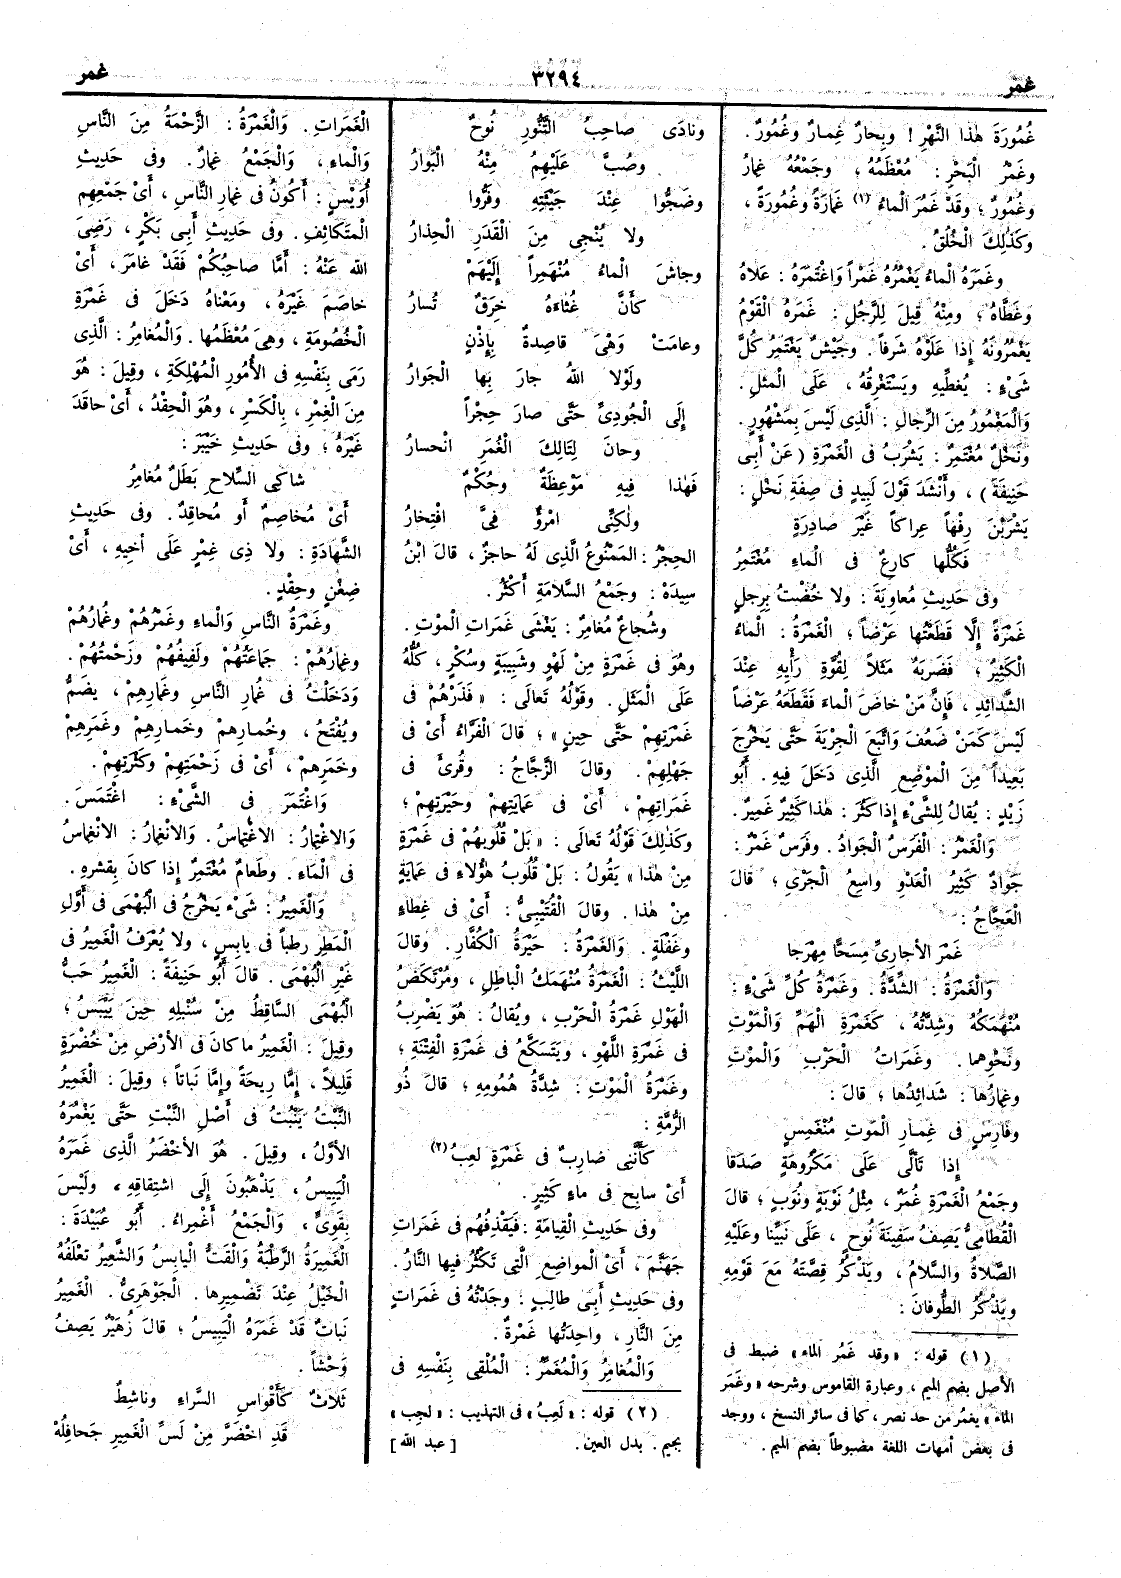 غمر
٣٢٩٤
غمر
غُمُورَةَ هٰذا النَّهْرِ ! وبِحارٌ غِمارٌ وغُمُورٌ .
وغَمْرُ الْبَحْرِ : مُعْظَمُهُ ؛ وجَمْعُهُ غِمارٌ
وغُمُورٌ ؛ وقَدْ غَمُرَ الْماءُ (١) غَمارَةً وغُمُورَةً ،
وكَذٰلِكَ الْخُلُقُ .
وغَمَرَهُ الْماءُ يَغْمُرُهُ غَمْراً وَاغْتَمَرَهُ : عَلاهُ
وغَطَّاهُ ؛ ومِنْهُ قِيلَ لِلرَّجُلِ : غَمَرَهُ الْقَوْمُ
يَغْمُرُونَهُ إِذا عَلَوْهُ شَرَفاً . وجَيْشٌ يَغْتَمِرُ كُلَّ
شَىْءٍ : يُغَطِّيهِ ويَسْتَغْرِقُهُ ، عَلَى الْمَثَلِ .
وَالْمَغْمُورُ مِنَ الرِّجالِ : الَّذِى لَيْسَ بِمَشْهُورٍ .
ونَخْلٌ مُغْتَمِرٌ : يَشْرَبُ فِى الْغَمْرَةِ (عَنْ أَبِى
حَنِيفَةَ) ، وأَنْشَدَ قَوْلَ لَبِيدٍ فِى صِفَةِ نَخْلٍ :
يَشْرَبْنَ رِفْهاً عِراكاً غَيْرَ صادِرَةٍ
فَكُلُّها كارِعٌ فِى الْماءِ مُغْتَمِرُ
وفِى حَدِيثِ مُعاوِيَةَ : ولا خُضْتُ بِرِجلٍ
غَمْرَةً إِلَّا قَطَعْتُها عَرْضاً ؛ الْغَمْرَةُ : الْماءُ
الْكَثِيرُ ؛ فَضَرَبَهُ مَثَلاً لِقُوَّةِ رَأْيِهِ عِنْدَ
الشَّدائِدِ ، فَإِنَّ مَنْ خاضَ الْماءَ فَقَطَعَهُ عَرْضاً
لَيْسَ كَمَنْ ضَعُفَ وَاتَّبَعَ الْجِرْيَةَ حَتَّى يَخْرُجَ
بَعِيداً مِنَ الْمَوْضِعِ الَّذِى دَخَلَ فِيهِ . أَبُو
زَيْدٍ : يُقالُ لِلشَّىْءِ إِذا كَثُرَ : هٰذا كَثِيرٌ غَمِيرٌ .
وَالْغَمْرُ : الْفَرَسُ الْجَوادُ . وفَرَسٌ غَمْرٌ :
جَوادٌ كَثِيرُ الْعَدْوِ واسِعُ الْجَرْىِ ؛ قالَ
الْعَجَّاجُ :
غَمْرَ الأَجارِىِّ مِسَحًّا مِهْرَجا
وَالْغَمْرَةُ : الشِّدَّةُ . وغَمْرَةُ كُلِّ شَىْءٍ :
مُنْهَمَكُهُ وشِدَّتُهُ ، كَغَمْرَةِ الْهَمِّ وَالْمَوْتِ
ونَحْوِهِما . وغَمَراتُ الْحَرْبِ وَالْمَوْتِ
وغِمارُها : شَدائِدُها ؛ قالَ :
وفارِسٍ فِى غِمارِ الْمَوْتِ مُنْغَمِسٍ
إِذا تَأَلَّى عَلَى مَكْرُوهَةٍ صَدَقا
وجَمْعُ الْغَمْرَةِ غُمَرٌ ، مِثْلُ نَوْبَةٍ ونُوَبٍ ؛ قالَ
الْقُطامِىُّ يَصِفُ سَفِينَةَ نُوحٍ ، عَلَى نَبِيِّنا وعَلَيْهِ
الصَّلاةُ والسَّلامُ ، ويَذْكُرُ قِصَّتَهُ مَعَ قَوْمِهِ
ويَذْكُرُ الطُّوفانَ :
(١) قوله : «وقد غَمُر الماء» ضبط فى
الأصل بضم الميم ، وعبارة القاموس وشرحه «وغَمَر
الماء» يغمُر من حد نصر ، كما فى سائر النسخ ، ووجد
فى بعض أمهات اللغة مضبوطاً بضم الميم .
ونادَى صاحِبُ التَّنُّورِ نُوحٌ
وصُبَّ عَلَيْهِمُ مِنْهُ الْبَوارُ
وضَجُّوا عِنْدَ جَيْئَتِهِ وفَرُّوا
ولا يُنْجِى مِنَ الْقَدَرِ الْحِذارُ
وجاشَ الْماءُ مُنْهَمِراً إِلَيْهِمْ
كَأَنَّ غُثاءَهُ خِرَقٌ تُسارُ
وعامَتْ وَهْىَ قاصِدةٌ بِإِذْنٍ
ولَوْلا اللهُ جارَ بِها الْجَوارُ
إِلَى الْجُودِىِّ حَتَّى صارَ حِجْراً
وحانَ لِتالِكَ الْغُمَرِ انْحسارُ
فَهٰذا فِيهِ مَوْعِظَةٌ وحُكْمٌ
ولٰكِنِّى امْرُؤٌ فِىَّ افْتِخارُ
الحِجْرُ : المَمْنُوعُ الَّذِى لَهُ حاجِزٌ ، قالَ ابْنُ
سِيدَهْ : وجَمْعُ السَّلامَةِ أَكْثَرُ .
وشُجاعٌ مُغامِرٌ : يَغْشَى غَمَراتِ الْمَوْتِ .
وهُوَ فِى غَمْرَةٍ مِنْ لَهْوٍ وشَبِيبَةٍ وسُكْرٍ ، كُلُّهُ
عَلَى الْمَثَلِ . وقَوْلُهُ تَعالَى : «فَذَرْهُمْ فِى
غَمْرَتِهِمْ حَتَّى حِينٍ» ؛ قالَ الْفَرَّاءُ أَىْ فِى
جَهْلِهِمْ . وقالَ الزَّجَّاجُ : وقُرِئَ فِى
غَمَراتِهِمْ ، أَىْ فِى عَمايَتِهِمْ وحَيْرَتِهِمْ ؛
وكَذٰلِكَ قَوْلُهُ تَعالَى : «بَلْ قُلُوبُهُمْ فِى غَمْرَةٍ
مِنْ هٰذا» يَقُولُ : بَلْ قُلُوبُ هٰؤُلاءِ فِى عَمايَةٍ
مِنْ هٰذا . وقالَ الْقُتَيْبِىُّ : أَىْ فِى غِطاءٍ
وغَفْلَةٍ . وَالْغَمْرَةُ : حَيْرَةُ الْكُفَّارِ . وقالَ
اللَّيْثُ : الْغَمْرَةُ مُنْهَمَكُ الْباطِلِ ، ومُرْتَكَضُ
الْهَوْلِ غَمْرَةُ الْحَرْبِ ، ويُقالُ : هُوَ يَضْرِبُ
فِى غَمْرَةِ اللَّهْوِ ، ويَتَسَكَّعُ فِى غَمْرَةِ الْفِتْنَةِ ؛
وغَمْرَةُ الْمَوْتِ : شِدَّةُ هُمُومِهِ ؛ قالَ ذُو
الرُّمَّةِ :
كَأَنَّنِى ضارِبٌ فِى غَمْرَةٍ لَعِبُ (٢)
أَىْ سابِحٍ فِى ماءٍ كَثِيرٍ .
وفِى حَدِيثِ الْقِيامَةِ : فَيَقْذِفُهُم فِى غَمَراتِ
جَهَنَّمَ ، أَىْ الْمواضِعِ الَّتِى تَكْثُرُ فِيها النَّارُ .
وفِى حَدِيثِ أَبِى طالِبٍ : وجَدْتُهُ فِى غَمَراتٍ
مِنَ النَّارِ ، واحِدَتُها غَمْرَةٌ .
وَالْمُغامِرُ وَالْمُغَمِّرُ : الْمُلْقِى بِنَفْسِهِ فِى
(٢) قوله : «لَعِبُ» فى التهذيب : «لجِب»
بجيم . بدل العين . [عبد الله]
الْغَمَراتِ . وَالْغَمْرَةُ : الزَّحْمَةُ مِنَ النَّاسِ
وَالْماءِ ، وَالْجَمْعُ غِمارٌ . وفِى حَدِيثِ
أُوَيْسٍ : أَكُونُ فِى غِمارِ النَّاسِ ، أَىْ جَمْعِهِمِ
الْمتَكاثِفِ . وفِى حَدِيثِ أَبِى بَكْرٍ ، رَضِىَ
الله عَنْهُ : أَمَّا صاحِبُكُمْ فَقَدْ غامَرَ ، أَىْ
خاصَمَ غَيْرَهُ ، ومَعْناهُ دَخَلَ فِى غَمْرَةِ
الْخُصُومَةِ ، وهِىَ مُعْظَمُها . وَالْمُغامِرُ : الَّذِى
رَمَى بِنَفْسِهِ فِى الأُمُورِ الْمُهْلِكَةِ ، وقِيلَ : هُوَ
مِنَ الْغِمْرِ ، بِالْكَسْرِ ، وهُوَ الْحِقْدُ ، أَىْ حاقَدَ
غَيْرَهُ ؛ وفِى حَدِيثِ خَيْبَرَ :
شاكِى السِّلاحِ بَطَلٌ مُغامِرُ
أَىْ مُخاصِمٌ أَو مُحاقِدٌ . وفِى حَدِيثِ
الشَّهادَةِ : ولا ذِى غِمْرٍ عَلَى أَخِيهِ ، أَىْ
ضِغْنٍ وحِقْدٍ .
وغَمْرَةُ النَّاسِ وَالْماءِ وغَمْرُهُمْ وغُمارُهُمْ
وغِمارُهُمْ : جَماعَتُهُمْ ولَفِيفُهُمْ وزَحْمَتُهُمْ .
وَدَخَلْتُ فِى غُمارِ النَّاسِ وغَمارِهِمْ ، يُضَمُّ
ويُفْتَحُ ، وخُمارِهِمْ وخَمارِهِمْ وغَمَرِهِمْ
وخَمَرِهِمْ ، أَىْ فِى زَحْمَتِهِمْ وكَثْرَتِهِمْ .
وَاغْتَمَرَ فِى الشَّىْءِ : اغْتَمَسَ .
وَالاِغْتِمارُ : الاِغْتِماسُ . وَالانْغِمارُ : الانْغِماسُ
فِى الْماءِ . وطَعامٌ مُغْتَمِرٌ إِذا كانَ بِقِشرِهِ .
وَالْغَمِيرُ : شَىْءٌ يَخْرُجُ فِى الْبُهْمَى فِى أَوَّلِ
الْمَطَرِ رَطْباً فِى يابِسٍ ، ولا يُعْرَفُ الْغَمِيرُ فِى
غَيْرِ الْبُهْمَى . قالَ أَبُو حَنِيفَةَ : الْغَمِيرُ حَبُّ
الْبُهْمَى السَّاقِطُ مِنْ سُنْبُلِهِ حِينَ يَيْبَسُ ؛
وقِيلَ : الْغَمِيرُ ما كانَ فِى الأَرْضِ مِنْ خُضْرَةٍ
قَلِيلاً ، إِمَّا رِيحَةً وإِمَّا نَباتاً ؛ وقِيلَ : الْغَمِيرُ
النَّبْتُ يَنْبُتُ فِى أَصْلِ النَّبْتِ حَتَّى يَغْمُرَهُ
الأَوَّلُ ، وقِيلَ . هُوَ الأَخْضَرُ الَّذِى غَمَرَهُ
الْيَبِيسُ ، يَذْهَبُونَ إِلَى اشْتِقاقِهِ ، ولَيْسَ
بِقَوِىٍّ ، وَالْجَمْعُ أَغْمِراءُ . أَبُو عُبَيْدَةَ :
الْغَمِيرَةُ الرَّطْبَةُ وَالْقَتُّ الْيابِسُ وَالشَّعِيرُ تَعْلَفُهُ
الْخَيْلُ عِنْدَ تَضْمِيرِها . الْجَوْهَرِىُّ . الْغَمِيرُ
نَباتٌ قَدْ غَمَرَهُ الْيَبِيسُ ؛ قالَ زُهَيْرٌ يَصِفُ
وَحْشاً .
ثَلاثٌ كَأَقْواسِ السَّراءِ وناشِطٌ
قَدِ اخْضَرَّ مِنْ لَسِّ الْغَمِيرِ جَحافِلُهْ